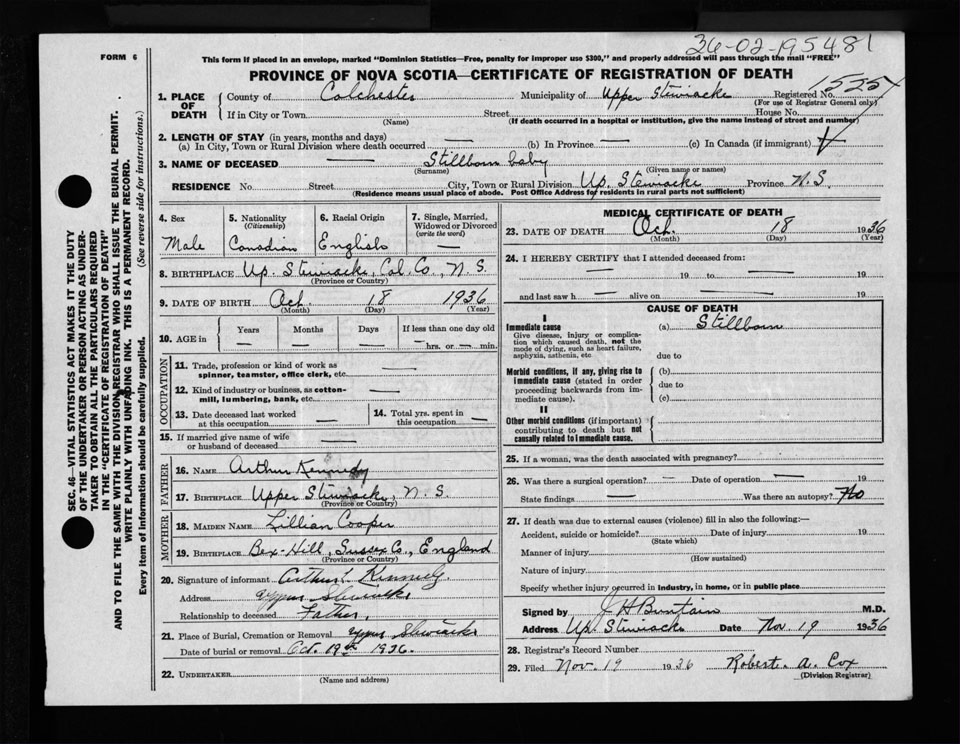 36-02-195481
FORM 6
This form if placed in an envelope, marked "Dominion Statistics—Free, penalty for improper use $300," and properly addressed will pass through the mail "FREE"
PROVINCE OF NOVA SCOTIA—CERTIFICATE OF REGISTRATION OF DEATH
SEC. 46—VITAL STATISTICS ACT MAKES IT THE DUTY
OF THE UNDERTAKER OR PERSON ACTING AS UNDER-
TAKER TO OBTAIN ALL THE PARTICULARS REQUIRED
IN THE "CERTIFICATE OF REGISTRATION OF DEATH"
AND TO FILE THE SAME WITH THE DIVISION REGISTRAR WHO SHALL ISSUE THE BURIAL PERMIT.
WRITE PLAINLY WITH UNFADING INK. THIS IS A PERMANENT RECORD.
Every item of information should be carefully supplied. (See reverse side for instructions.)
1. PLACE OF DEATH
County of Colchester Municipality of Upper Stewiacke Registered No. 1525
(For use of Registrar General only)
If in City or Town Street House No.
(Name) (If death occurred in a hospital or institution, give the name instead of street and number)
2. LENGTH OF STAY (in years, months and days)
(a) In City, Town or Rural Division where death occurred — (b) In Province — (c) In Canada (if immigrant)
3. NAME OF DECEASED — Stillborn baby
(Surname) (Given name or names)
RESIDENCE No. Street City, Town or Rural Division Up. Stewiacke Province N.S.
(Residence means usual place of abode. Post Office Address for residents in rural parts not sufficient)
4. Sex
Male
5. Nationality
(Citizenship)
Canadian
6. Racial Origin
English
7. Single, Married,
Widowed or Divorced
(write the word)
—
8. BIRTHPLACE Up. Stewiacke, Col. Co., N.S.
(Province or Country)
9. DATE OF BIRTH Oct. 18 1936
(Month) (Day) (Year)
10. AGE in
Years Months Days If less than one day old
— — — — hrs. or — min.
OCCUPATION
11. Trade, profession or kind of work as
spinner, teamster, office clerk, etc. —
12. Kind of industry or business, as cotton-
mill, lumbering, bank, etc. —
13. Date deceased last worked
at this occupation —
14. Total yrs. spent in
this occupation —
15. If married give name of wife
or husband of deceased —
FATHER
16. NAME Arthur Kennedy
17. BIRTHPLACE Upper Stewiacke, N.S.
(Province or Country)
MOTHER
18. MAIDEN NAME Lillian Cooper
19. BIRTHPLACE Bex-Hill, Sussex Co., England
(Province or Country)
20. Signature of informant Arthur Kennedy
Address Upper Stewiacke
Relationship to deceased Father
21. Place of Burial, Cremation or Removal Upper Stewiacke
Date of burial or removal Oct. 19th 1936.
22. UNDERTAKER
(Name and address)
MEDICAL CERTIFICATE OF DEATH
23. DATE OF DEATH Oct. 18 1936
(Month) (Day) (Year)
24. I HEREBY CERTIFY that I attended deceased from:
— 19 to — 19
and last saw h — alive on — 19
CAUSE OF DEATH
I
Immediate cause (a) Stillborn
Give disease, injury or complica-
tion which caused death, not the
mode of dying, such as heart failure,
asphyxia, asthenia, etc. due to
Morbid conditions, if any, giving rise to (b)
immediate cause (stated in order due to
proceeding backwards from im-
mediate cause). (c)
II
Other morbid conditions (if important)
contributing to death but not
causally related to immediate cause.
25. If a woman, was the death associated with pregnancy?
26. Was there a surgical operation? — Date of operation — 19
State findings — Was there an autopsy? No
27. If death was due to external causes (violence) fill in also the following:—
Accident, suicide or homicide? Date of injury 19
(State which)
Manner of injury
(How sustained)
Nature of injury
Specify whether injury occurred in industry, in home, or in public place
Signed by J H Buntain M.D.
Address Up. Stewiacke Date Nov. 19 1936
28. Registrar's Record Number
29. Filed Nov. 19 1936 Robert. A. Cox
(Division Registrar)